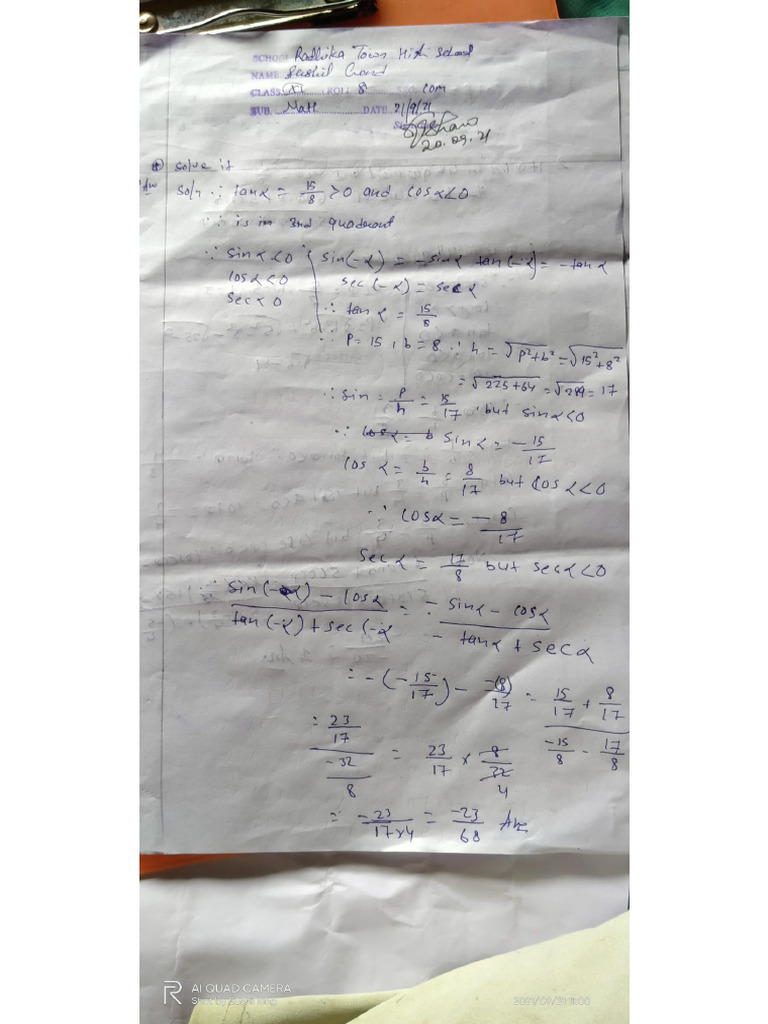 SCHOOL Radhika Town High School
NAME Sushil Chand
CLASS XI ROLL 8 SEC COM
SUB. Math DATE 21/9/21
20.09.21
Solve it
Ans Soln ∵ tanα = 15/8 > 0 and cosα<0
∵ is in 3rd quadrant
∵ sinα<0 sin(-α) = -sinα tan(-α) = -tanα
cosα<0 sec(-α) = secα
secα0 ∴ tanα = 15/8
∴ P=15, b=8 ∵ h = √P²+b² = √15²+8²
= √225+64 = √289 = 17
∴ sin = P/h = 15/17, but sinα<0
∵ sinα = -15/17
cosα = b/h = 8/17 but cosα<0
∴ cosα = -8/17
secα = 17/8 but secα<0
∵ sin(-α) - cosα / tan(-α) + sec(-α = - sinα - cosα / - tanα + secα
= -(-15/17) - -(8)/17 = 15/17 + 8/17 / -15/8 - 17/8
= 23/17 / -32/8 = 23/17 × 8/32 4
= -23/17×4 = -23/68 Ans
AI QUAD CAMERA